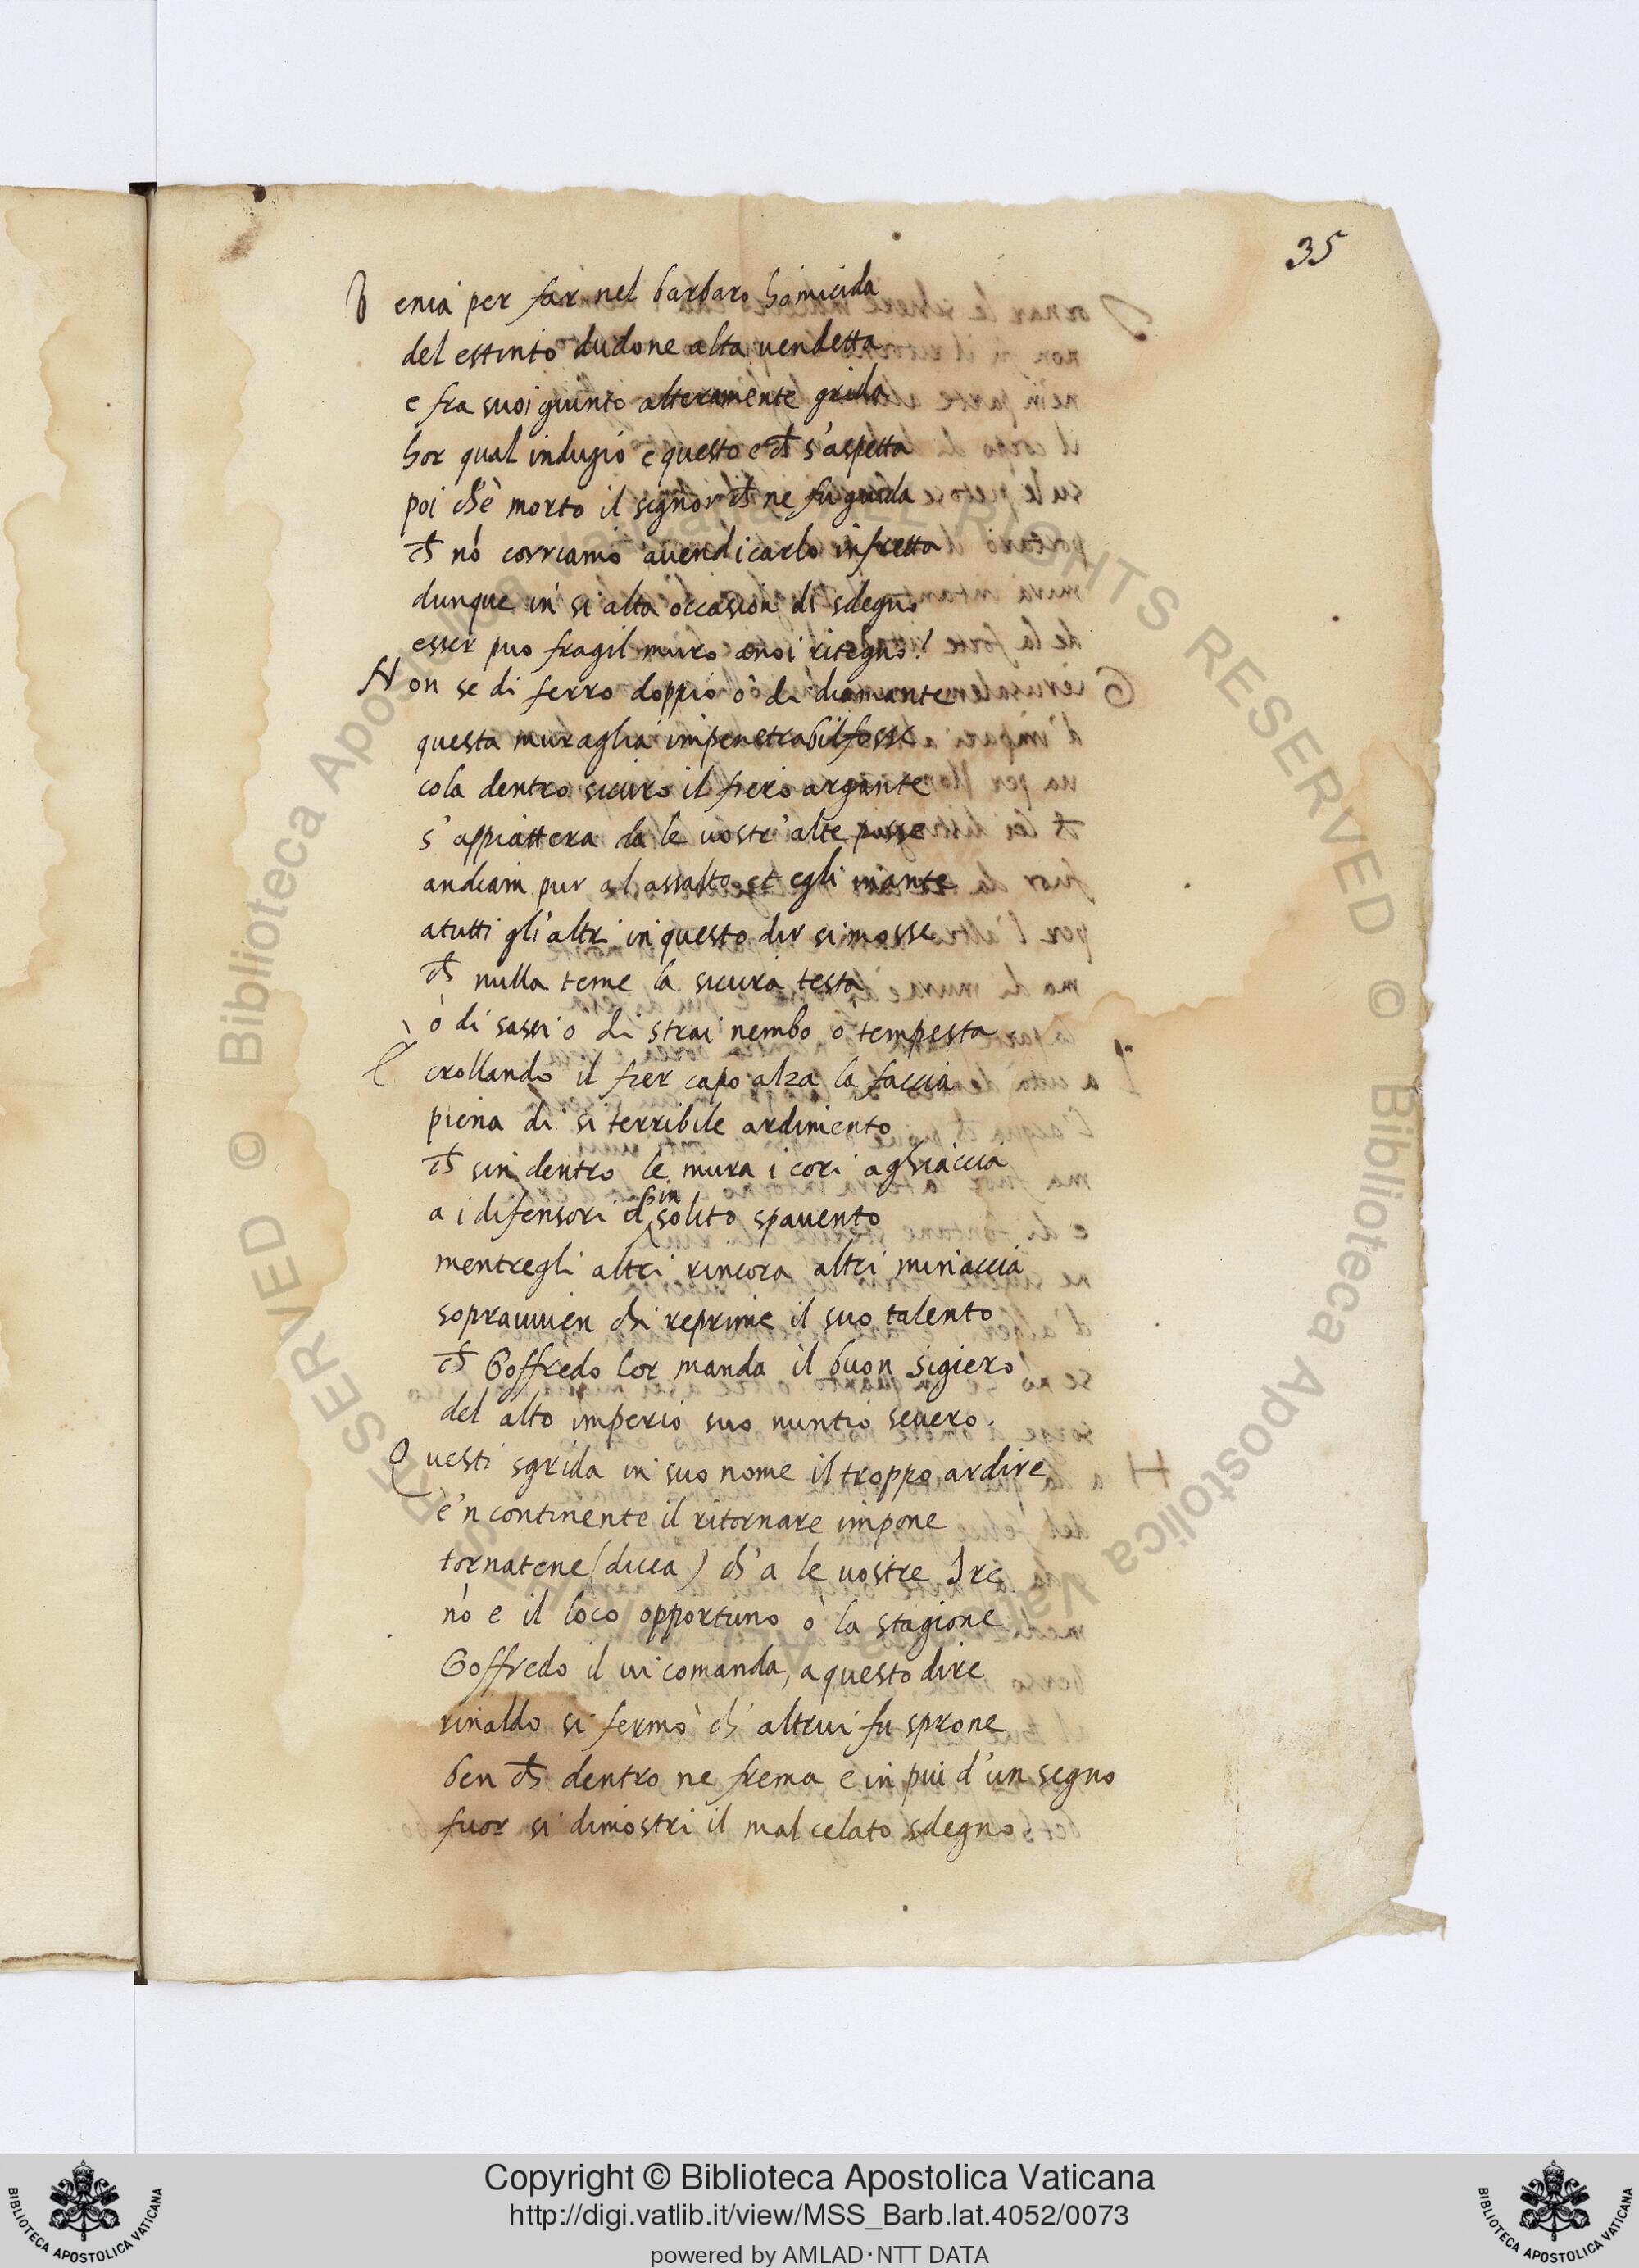 35
Venia per far nel barbaro homicida
del estinto dudone alta uendetta
e fra suoi giunto alteramente grida
hor qual indugio è questo e ch̄ s'aspetta
poi ch'è morto il signor ch̄ ne fu guida
ch̄ nō corriamo auendicarlo infretta
dunque in si alta occasion di sdegno
esser puo fragil muro anoi ritegno?
Non se di ferro doppio ò di diamante
questa muraglia impenetrabil fosse
cola dentro sicuro il fiero argante
s'appiattera da le uostr'alte posse
andiam pur al assalto et egli inante
atutti gli altri in questo dir si mosse
ch̄ nulla teme la sicura testa
ò di sassi o di strai nembo o tempesta
E crollando il fier capo alza la faccia
piena di si terribile ardimento
ch̄ sin dentro le mura i cori aghiaccia
a i difensori d'insolito spauento
mentregli altri rincora altri minaccia
soprauuien chi reprime il suo talento
ch̄ Goffredo lor manda il buon sigiero
del alto imperio suo nuntio seuero.
Questi sgrida in suo nome il troppo ardire
e'n continente il ritornare impone
tornatene (dicea) ch'a le uostre Ire
nō e il loco opportuno ò la stagione
Goffredo il ui comanda, a questo dire
rinaldo si fermò ch'altrui fu sprone
ben ch̄ dentro ne frema e in piu d'un segno
fuor si dimostri il mal celato sdegno
Copyright © Biblioteca Apostolica Vaticana
http://digi.vatlib.it/view/MSS_Barb.lat.4052/0073
powered by AMLAD·NTT DATA
BIBLIOTECA APOSTOLICA VATICANA
BIBLIOTECA APOSTOLICA VATICANA